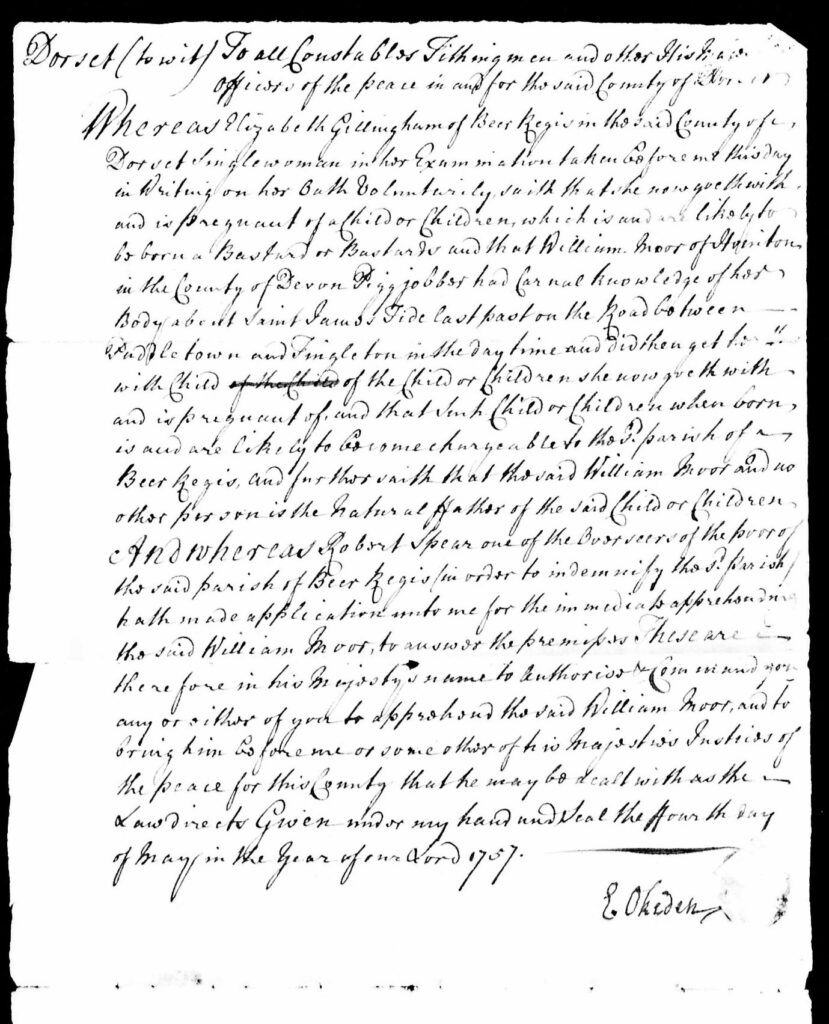 Dorset (to wit) To all Constables Tithingmen and other His
officers of the peace in and for the said County of Dorset
Whereas Elizabeth Gillingham of Beer Regis in the said County of
Dorset Singlewoman in her Examination taken before me this day
in Writing on her Oath Voluntarily, saith that she now goeth with
and is pregnant of a Child or Children, which is and are likely to
be born a Bastard or Bastards and that William Moor of
in the County of Devon Piggjobber had Carnal knowledge of her
Body about Saint James Tide last past on the Road between
Puddletown and Tingleton in the day time and did then get her
with Child of the Child of the Child or Children she now goeth with
and is pregnant of, and that such Child or Children when born,
is and are likely to become chargeable to the sd. parish of
Beer Regis, and further saith that the said William Moor and no
other person is the Natural ffather of the said Child or Children
And whereas Robert Spear one of the Overseers of the poor of
the said parish of Beer Regis (in order to indemnify the sd. Parish)
hath made application unto me for the immediate apprehending
the said William Moor, to answer the premisses These are
therefore in his Majestys name to Authorise & Command you
any or either of you to apprehend the said William Moor, and to
bring him before me or some other of his Majesties Justices of
the peace for this County that he may be dealt with as the
Law directs Given under my hand and Seal the ffourth day
of May in the Year of our Lord 1757.
E Okeden